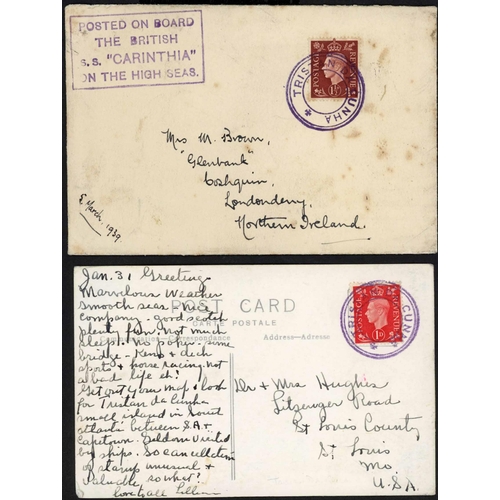 POSTED ON BOARD
THE BRITISH
S.S. "CARINTHIA"
ON THE HIGH SEAS.
POSTAGE REVENUE
1½D
TRISTAN DA CUNHA
Mrs M. Brown,
"Glenbank"
Coshquin,
Londonderry,
Northern Ireland.
March, 1939
POST CARD
CARTE POSTALE
Correspondence Address–Adresse
POSTAGE REVENUE
1D
TRISTAN DA CUNHA
Jan. 31 Greetings
Marvelous Weather
smooth seas. Nice
company - good scotch
plenty fun. Not much
sleep! No poker - some
bridge - Keno & deck
sports & horse racing. not
a bad life eh?
Get out your map & look
for Tristan da Cunha
small island in South
atlantic between S.A &
Capetown. Seldom visited
by ships. So cancellation
of stamp unusual &
valuable, so what?
love to all
Dr & Mrs Hughes
Litzsinger Road
St Louis County
St Louis
Mo
U.S.A